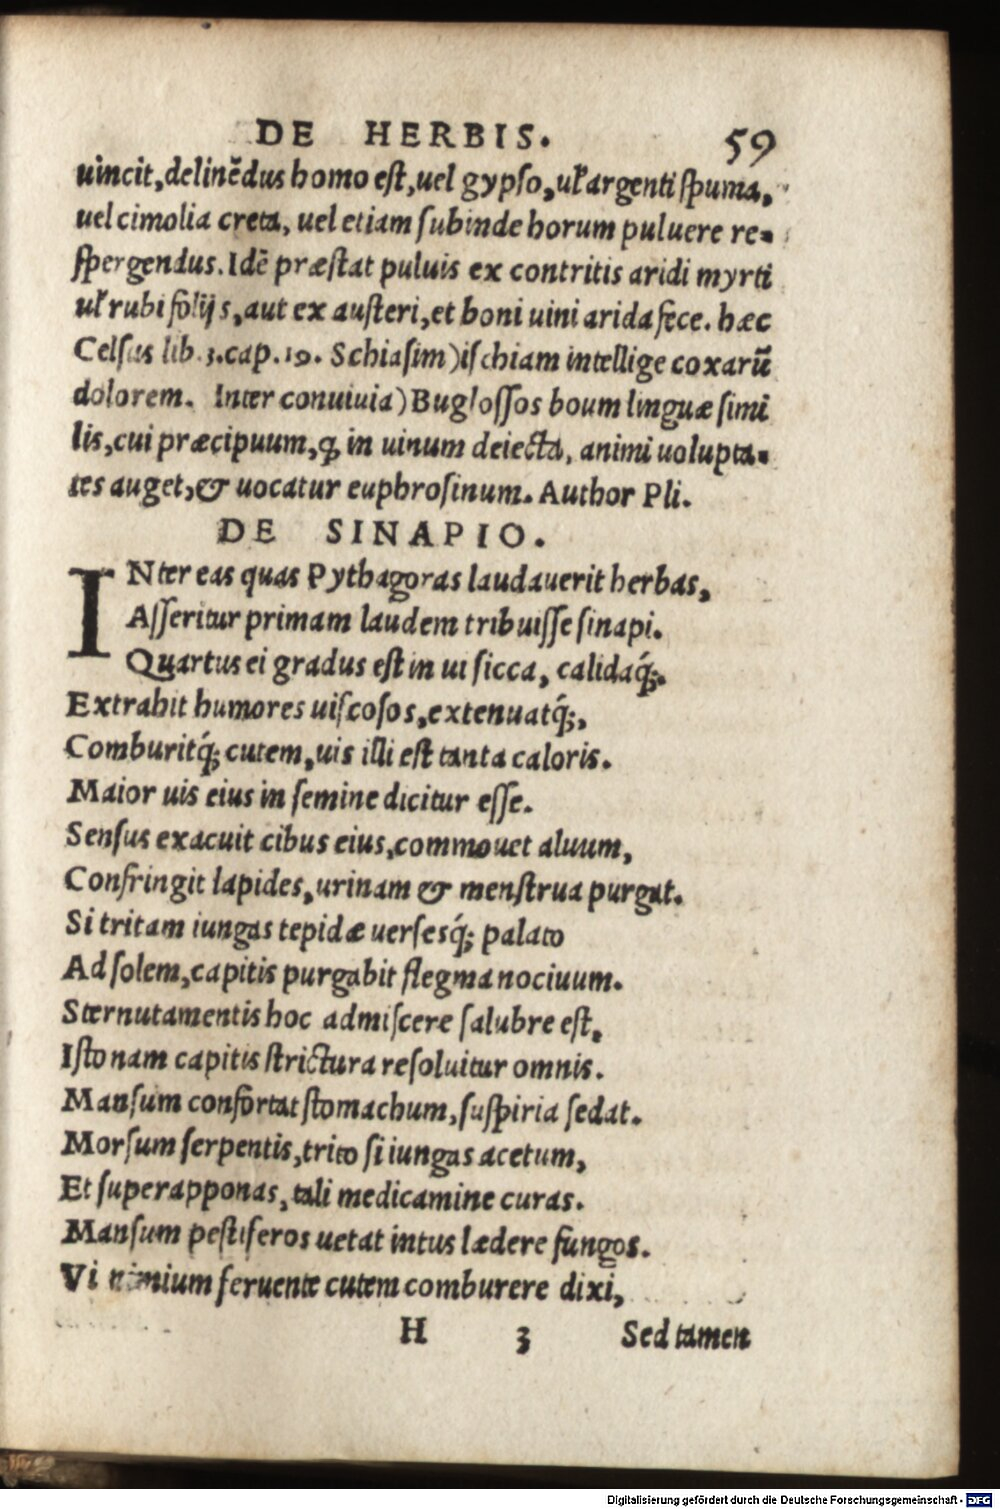 DE HERBIS. 59
uincit, delinẽdus homo est, uel gypso, uľ argenti spuma,
uel cimolia creta, uel etiam subinde horum puluere re-
spergendus. Idẽ præstat puluis ex contritis aridi myrti
uľ rubi folijs, aut ex austeri, et boni uini arida fece. hæc
Celsus lib. 3. cap. 19. Schiasim) ischiam intellige coxarũ
dolorem. Inter conuiuia) Buglossos boum linguæ simi
lis, cui præcipuum, ꝙ in uinum deiecta, animi uolupta-
tes auget, & uocatur euphrosinum. Author Pli.
DE SINAPIO.
INter eas quas Pythagoras laudauerit herbas,
Asseritur primam laudem tribuisse sinapi.
Quartus ei gradus est in ui sicca, calidaq́;.
Extrahit humores uiscosos, extenuatq́;,
Comburitq́; cutem, uis illi est tanta caloris.
Maior uis eius in semine dicitur esse.
Sensus exacuit cibus eius, commouet aluum,
Confringit lapides, urinam & menstrua purgat.
Si tritam iungas tepidæ uersesq́; palato
Ad solem, capitis purgabit flegma nociuum.
Sternutamentis hoc admiscere salubre est,
Isto nam capitis strictura resoluitur omnis.
Mansum confortat stomachum, suspiria sedat.
Morsum serpentis, trito si iungas acetum,
Et superapponas, tali medicamine curas.
Mansum pestiferos uetat intus lædere fungos.
Vi nimium feruente cutem comburere dixi,
H 3 Sed tamen
Digitalisierung gefördert durch die Deutsche Forschungsgemeinschaft - DFG